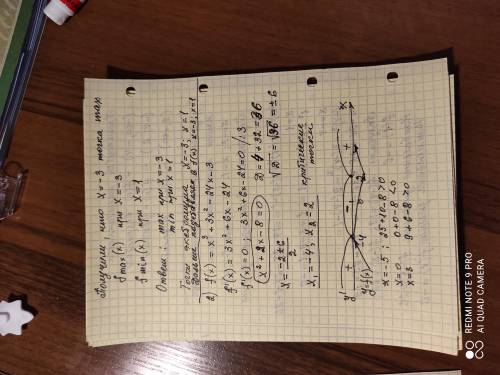 Получили, что x=-3 точка max
f max (x) при x=-3
f min (x) при x=1
Ответ: max при x=-3
min при x=1
Точки экстремума x=-3; x=1
x=-3, x=1
2) f(x) = x³+3x²-24x-3
f'(x) = 3x²+6x-24
f'(x)=0; 3x²+6x-24=0 /:3
x²+2x-8=0 D=4+32=36
√D = √36 = ±6
x = -2±6 / 2
x₁=-4; x₂=2 критические
точки
y' + - + x
y=f(x) -4 0 2
x=-5; 25-10-8>0
x=0 0+0-8<0
x=3 9+6-8>0
REDMI NOTE 9 PRO
AI QUAD CAMERA